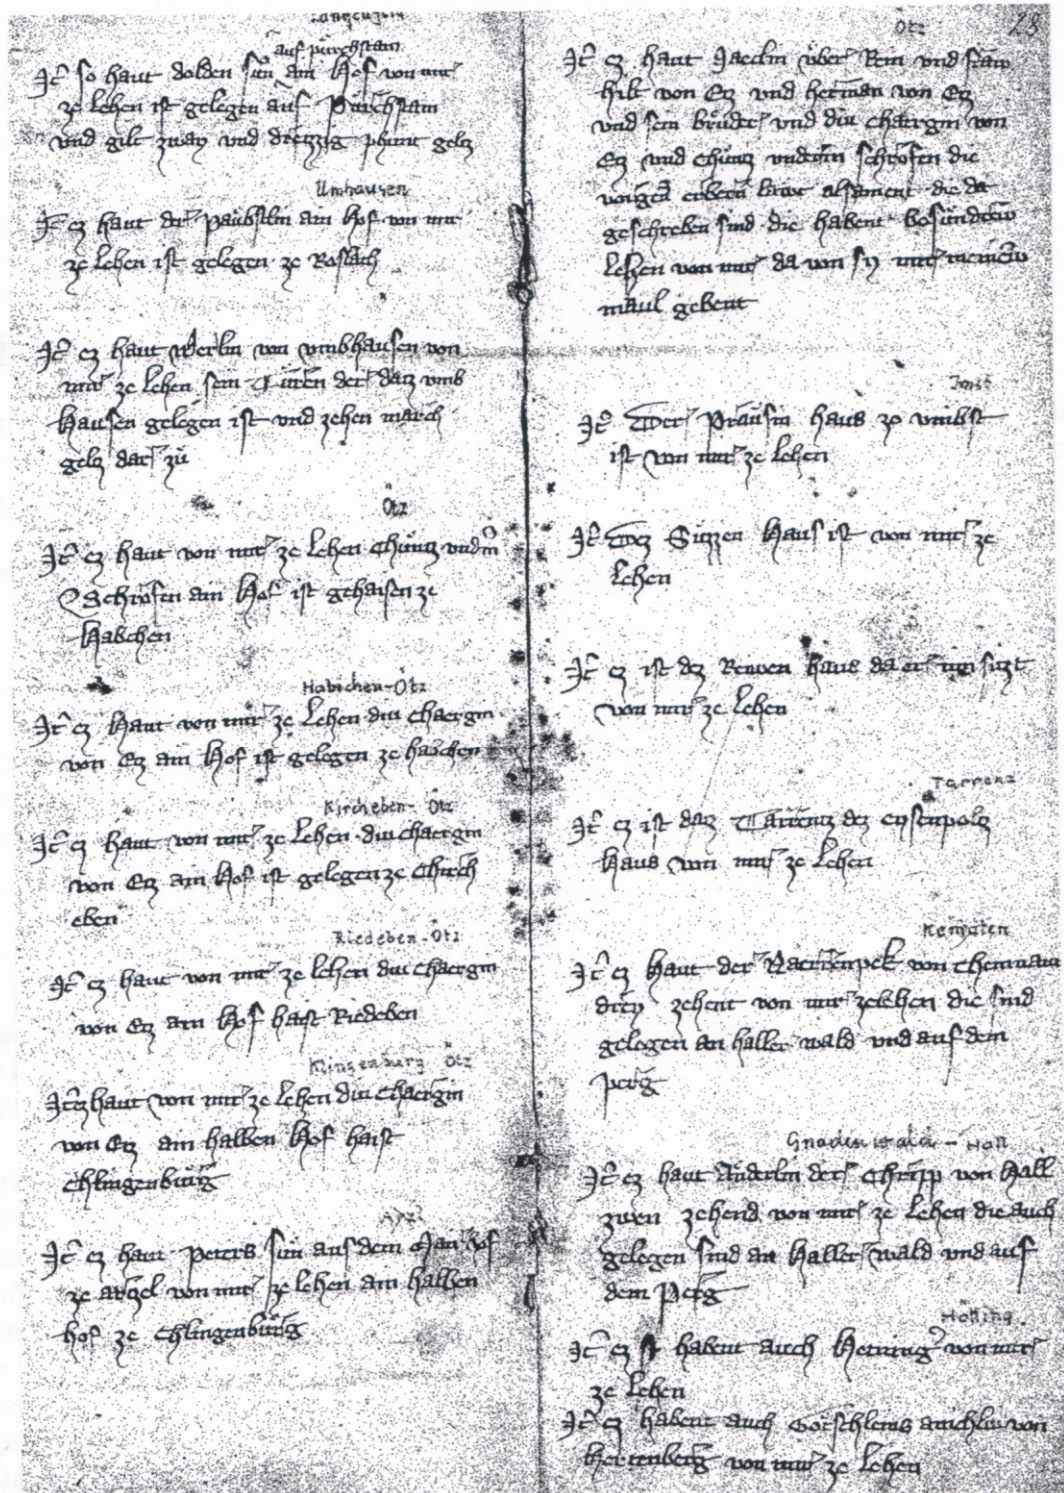 Längenfeld
auf pürchstain
Itͫ so haut dolden sün ain hof von mir
ze lehen ist gelegen auf Pürchstain
vnd gilt zway vnd dreizzig phunt geltz
Umhausen
Itͫ ez haut der Päubstlin ain hof von mir
ze lehen ist gelegen ze Roslach
Itͫ ez haut Werlin von vmbhausen von
mir ze lehen sein Türen der datz vmb
hausen gelegen ist vnd zehen march
geltz dar zü
Ötz
Itͫ ez haut von mir ze lehen Chüntz vnderm
Schrofen ain hof ist gehaisen ze
habchen
Habichen-Ötz
Itͫ ez haut von mir ze lehen diu chaergin
von Etz ain hof ist gelegen ze habchen
Kircheben-Ötz
Itͫ ez haut von mir ze lehen diu chaergin
von Etz ain hof ist gelegen ze Chirch
eben
Riedeben-Ötz
Itͫ ez haut von mir ze lehen diu chaergin
von Etz ain hof haist Riedeben
Klingenburg Ötz
Itͫ ez haut von mir ze lehen diu chaergin
von Etz ain halben hof haist
chlingenbürg
Itͫ ez haut Peters sün auf dem
ze von mir ze lehen ain halben
hof ze Chlingenbürg
28
Ötz
Itͫ ez haut Jaeclin über Rein vnd
von Etz vnd herman von Etz
vnd sein brüder vnd diu chaergin von
Etz vnd chüntz vnderm schrofen die
alsament die da
geschreben sind die habent besünderew
lehen von mir da von sy mir
maul gebent
Imst
Itͫ Der Präusin haus ze vmbst
ist von mir ze lehen
Itͫ Dez Süzzen haus ist von mir ze
lehen
Itͫ ez ist dez haus da er inn sitzt
von mir ze lehen
Tarrenz
Itͫ ez ist datz Tärrentz dez eysenpoltz
haus von mir ze lehen
Kematen
Itͫ ez haut der von chemnaten
drey zehent von mir ze lehen die sind
gelegen an haller wald vnd auf dem
perg
Gnadenwald - Hall
Itͫ ez haut Änderlin der Chripp von Hall
zwen zehend von mir ze lehen die auch
gelegen sind an haller wald vnd auf
dem Perg
Hötting.
Itͫ ez habent auch von mir
ze lehen
Itͫ ez habent auch von
von mir ze lehen